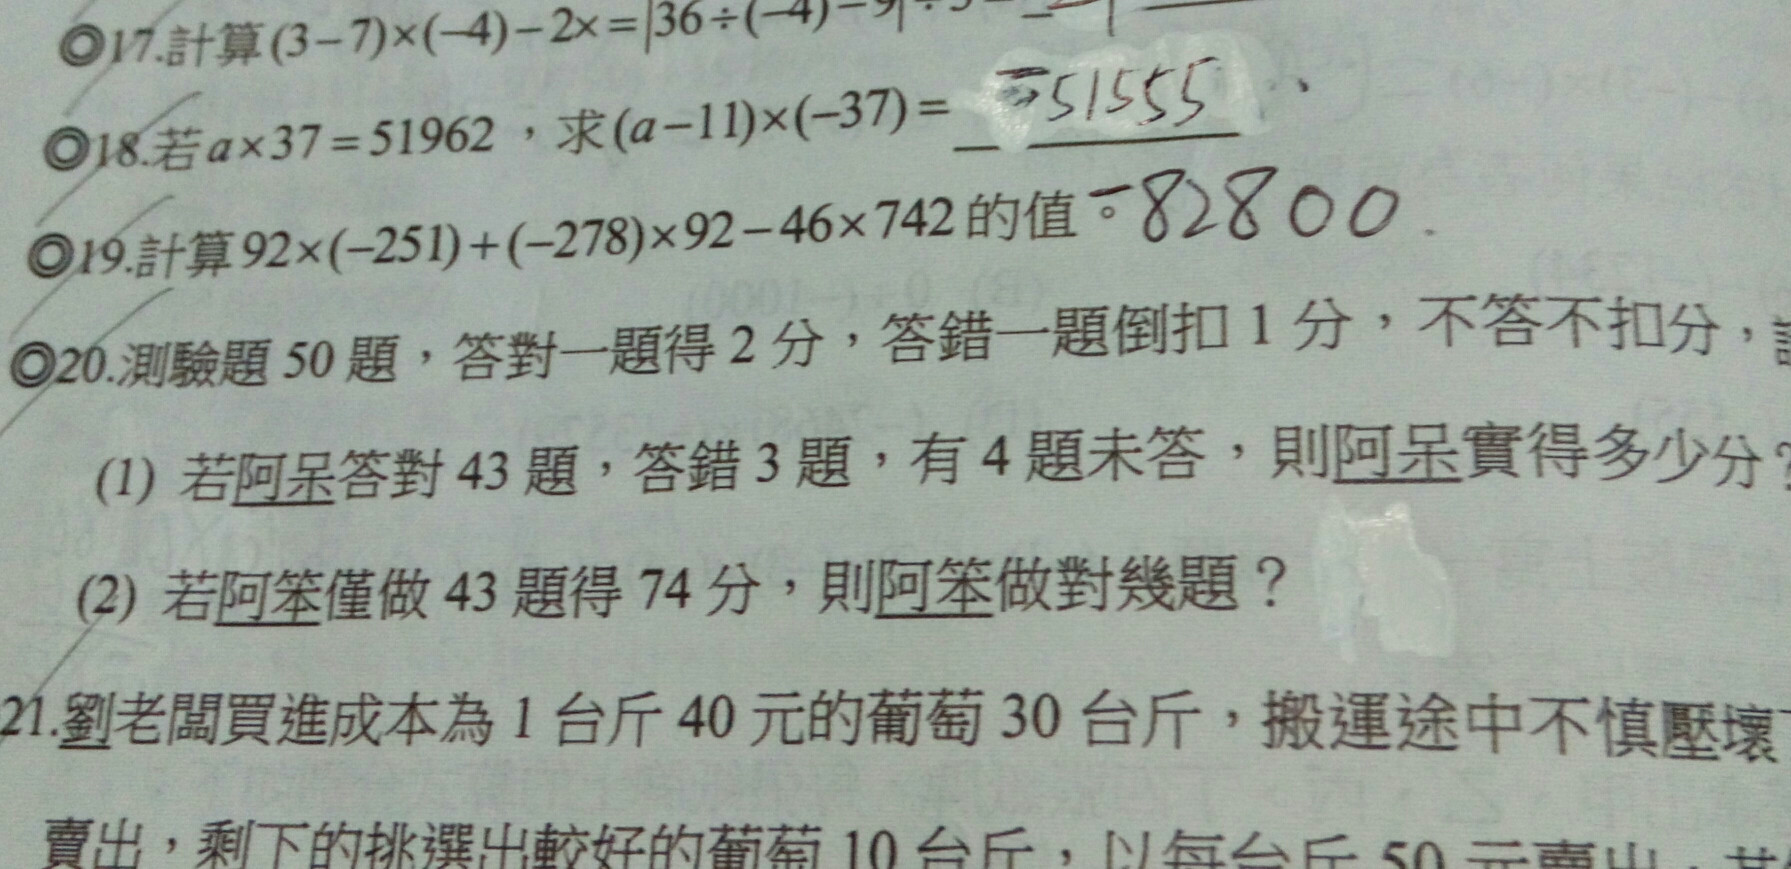 ◎17.計算(3-7)×(-4)-2×=|36÷(-4)-9|÷3=
◎18.若a×37=51962,求(a-11)×(-37)= -51555
◎19.計算92×(-251)+(-278)×92-46×742的值。-82800
◎20.測驗題50題,答對一題得2分,答錯一題倒扣1分,不答不扣分,
(1) 若阿呆答對43題,答錯3題,有4題未答,則阿呆實得多少分?
(2) 若阿笨僅做43題得74分,則阿笨做對幾題?
21.劉老闆買進成本為1台斤40元的葡萄30台斤,搬運途中不慎壓壞
賣出,剩下的挑選出較好的葡萄10台斤,以每台斤50元賣出,其